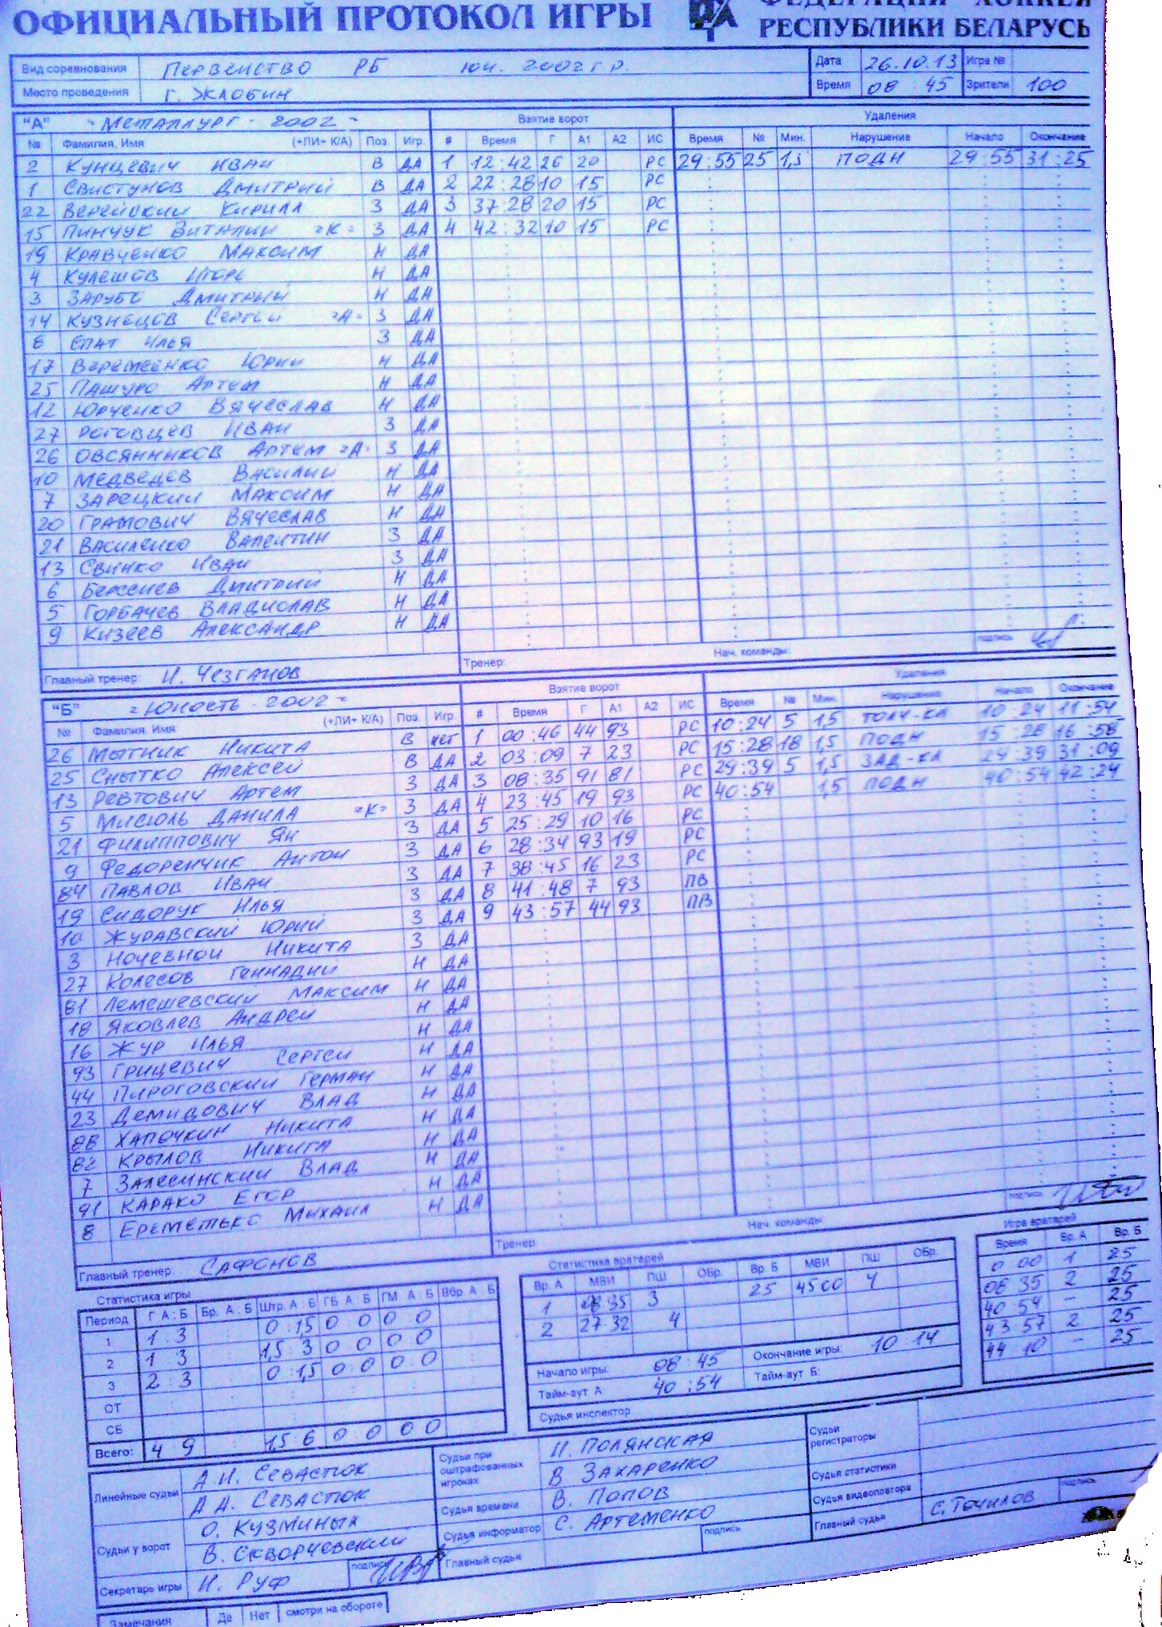 ОФИЦИАЛЬНЫЙ ПРОТОКОЛ ИГРЫ
РЕСПУБЛИКИ БЕЛАРУСЬ
Вид соревнования ПЕРВЕНСТВО РБ юн. 2002 г.р. Дата 26.10.13 Игра №
Место проведения г. ЖЛОБИН Время 08 : 45 Зрители 100
"А" - МЕТАЛЛУРГ - 2002 - Взятие ворот Удаления
№ Фамилия, Имя (+ЛИ+ К/А) Поз. Игр. # Время Г А1 А2 ИС Время № Мин. Нарушение Начало Окончание
2 КУНЦЕВИЧ ИВАН В ДА 1 12:42 26 20 РС 29:55 25 1,5 ПОДН 29:55 31:25
1 СВИСТУНОВ ДМИТРИЙ В ДА 2 22:28 10 15 РС
22 ВЕРЕЙСКИЙ КИРИЛЛ З ДА 3 37:28 20 15 РС
15 ПИНЧУК ВИТАЛИЙ =К= З ДА 4 42:32 10 15 РС
19 КРАВЧЕНКО МАКСИМ Н ДА
4 КУЛЕШОВ ИГОРЬ Н ДА
3 ЗАРУБО ДМИТРИЙ Н ДА
14 КУЗНЕЦОВ СЕРГЕЙ =А= З ДА
8 ЕПАТ ИЛЬЯ З ДА
17 ВЕРЕМЕЕНКО ЮРИЙ Н ДА
25 ПАШУРО АРТЕМ Н ДА
12 ЮРЧЕНКО ВЯЧЕСЛАВ Н ДА
27 РОГОВЦЕВ ИВАН З ДА
26 ОВСЯННИКОВ АРТЕМ =А= З ДА
10 МЕДВЕДЕВ ВАСИЛИЙ Н ДА
7 ЗАРЕЦКИЙ МАКСИМ Н ДА
20 ГРАМОВИЧ ВЯЧЕСЛАВ Н ДА
21 ВАСИЛЕНКО ВАЛЕНТИН З ДА
13 СВИНКО ИВАН З ДА
6 ДМИТРИЙ Н ДА
5 ГОРБАЧЕВ ВЛАДИСЛАВ Н ДА
9 КИЗЕЕВ АЛЕКСАНДР Н ДА
Главный тренер: И. ЧЕЗГАНОВ Тренер: Нач. команды: подпись
"Б" = ЮНОСТЬ - 2002 = Взятие ворот Удаления
№ Фамилия, Имя (+ЛИ+ К/А) Поз. Игр. # Время Г А1 А2 ИС Время № Мин. Нарушение Начало Окончание
26 МЫТНИК НИКИТА В НЕТ 1 00:46 44 93 РС 10:24 5 1,5 ТОЛЧ-КА 10:24 11:54
25 СНЫТКО АЛЕКСЕЙ В ДА 2 03:09 7 23 РС 15:28 18 1,5 ПОДН 15:28 16:58
13 РЕВТОВИЧ АРТЕМ З ДА 3 08:35 91 81 РС 29:39 5 1,5 ЗАД-КА 29:39 31:09
5 МИСЮЛЬ ДАНИЛА =К= З ДА 4 23:45 19 93 РС 40:54 1,5 ПОДН 40:54 42:24
21 ФИЛИППОВИЧ ЯН З ДА 5 25:29 10 16 РС
9 ФЕДОРЕНЧИК АНТОН З ДА 6 28:34 93 19 РС
84 ПАВЛОВ ИВАН З ДА 7 38:45 16 23 РС
19 СИДОРУК ИЛЬЯ З ДА 8 41:48 7 93 ПВ
10 ЖУРАВСКИЙ ЮРИЙ З ДА 9 43:57 44 93 ПВ
3 НОЧЕВНОЙ НИКИТА З ДА
27 КОЛЕСОВ ГЕННАДИЙ Н ДА
81 ЛЕМЕШЕВСКИЙ МАКСИМ Н ДА
18 ЯКОВЛЕВ АНДРЕЙ Н ДА
16 ЖУР ИЛЬЯ Н ДА
93 ГРИЦЕВИЧ СЕРГЕЙ Н ДА
44 ПИРОГОВСКИЙ ГЕРМАН Н ДА
23 ДЕМИДОВИЧ ВЛАД Н ДА
88 ХАПОЧКИН НИКИТА Н ДА
82 КРЫЛОВ НИКИТА Н ДА
7 ЗАЛЕСИНСКИЙ ВЛАД Н ДА
91 КАРАКО ЕГОР Н ДА
8 МИХАИЛ Н ДА
Главный тренер: САФОНОВ Тренер: Нач. команды: подпись
Статистика игры Статистика вратарей Игра вратарей
Период Г А : Б Бр. А : Б Штр. А : Б ГБ А : Б ГМ А : Б Вбр А : Б Вр. А МВИ ПШ ОБр. Вр. Б МВИ ПШ ОБр. Время Вр. А Вр. Б
1 1 3 0 : 1,5 0 0 0 0 1 08 35 3 25 45 00 4 0 00 1 25
2 1 3 1,5 3 0 0 0 0 2 27 32 4 08 35 2 25
3 2 : 3 0 : 1,5 0 0 0 0 40 54 – 25
ОТ Начало игры: 08 : 45 Окончание игры: 10 14 43 57 2 25
СБ Тайм-аут А 40 : 54 Тайм-аут Б: 44 10 – 25
Всего: 4 9 1,5 6 0 0 0 0 Судья инспектор
Линейные судьи А. И. СЕВАСТЮК
А. А. СЕВАСТЮК
Судьи у ворот О. КУЗМИНЫХ
В. СКВОРЧЕВСКИЙ
Секретарь игры И. РУФ подпись
Судьи при оштрафованных игроках И. ПОЛЯНСКАЯ
В. ЗАХАРЕНКО
Судья времени В. ПОПОВ
Судья информатор С. АРТЕМЕНКО
Главный судья подпись
Судьи регистраторы
Судья статистики
Судья видеоповтора
Главный судья С. ТОЧИЛОВ подпись
Замечания Да Нет смотри на обороте